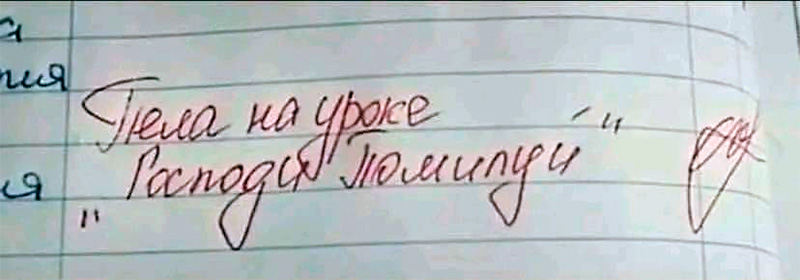 Пела на уроке
"Господи Помилуй"